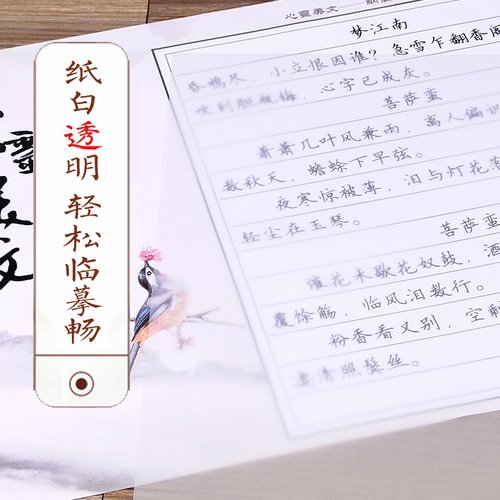 纸白透明 轻松临摹畅
心靈美文
梦江南
昏鸦尽，小立恨因谁？急雪乍翻香阁
吹到胆瓶梅，心字已成灰。
菩萨蛮
萧萧几叶风兼雨，离人偏识
数秋天，蟾蜍下早弦。
夜寒惊被薄，泪与灯花落
轻尘在玉琴。
菩萨蛮
催花未歇花奴鼓，酒
覆馀觞，临风泪数行。
粉香看又别，空剩
凄清照鬓丝。